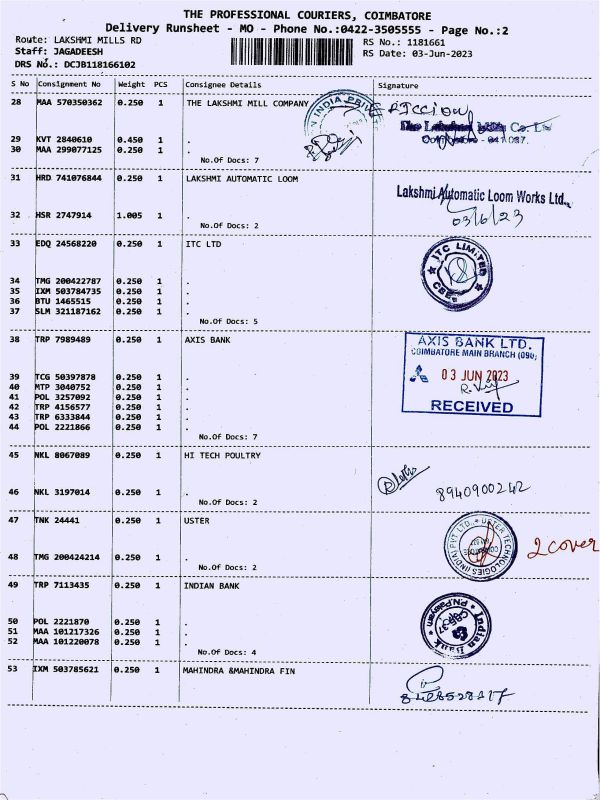 THE PROFESSIONAL COURIERS, COIMBATORE
Delivery Runsheet - MO - Phone No.:0422-3505555 - Page No.:2
Route: LAKSHMI MILLS RD
RS No.: 1181661
Staff: JAGADEESH
RS Date: 03-Jun-2023
DRS No.: DCJB118166102
S No Consignment No Weight PCS Consignee Details Signature
28 MAA 570350362 0.250 1 THE LAKSHMI MILL COMPANY
INDIA PRIVATE
29 KVT 2840610 0.450 1 .
30 MAA 299077125 0.250 1 .
No.Of Docs: 7
31 HRD 741076844 0.250 1 LAKSHMI AUTOMATIC LOOM
Lakshmi Automatic Loom Works Ltd.,
03/6/23
32 HSR 2747914 1.005 1 .
No.Of Docs: 2
33 EDQ 24568220 0.250 1 ITC LTD
ITC LIMITED
34 TMG 200422787 0.250 1 .
35 IXM 503784735 0.250 1 .
36 BTU 1465515 0.250 1 .
37 SLM 321187162 0.250 1 .
No.Of Docs: 5
38 TRP 7989489 0.250 1 AXIS BANK
AXIS BANK LTD.
COIMBATORE MAIN BRANCH (090)
03 JUN 2023
RECEIVED
39 TCG 50397878 0.250 1 .
40 MTP 3040752 0.250 1 .
41 POL 3257092 0.250 1 .
42 TRP 4156577 0.250 1 .
43 TRP 6333844 0.250 1 .
44 POL 2221866 0.250 1 .
No.Of Docs: 7
45 NKL 8067089 0.250 1 HI TECH POULTRY
8940900242
46 NKL 3197014 0.250 1 .
No.Of Docs: 2
47 TNK 24441 0.250 1 USTER
USTER TECHNOLOGIES (INDIA) PVT LTD.
2 cover
48 TMG 200424214 0.250 1 .
No.Of Docs: 2
49 TRP 7113435 0.250 1 INDIAN BANK
Indian Bank
50 POL 2221870 0.250 1 .
51 MAA 101217326 0.250 1 .
52 MAA 101220078 0.250 1 .
No.Of Docs: 4
53 IXM 503785621 0.250 1 MAHINDRA &MAHINDRA FIN